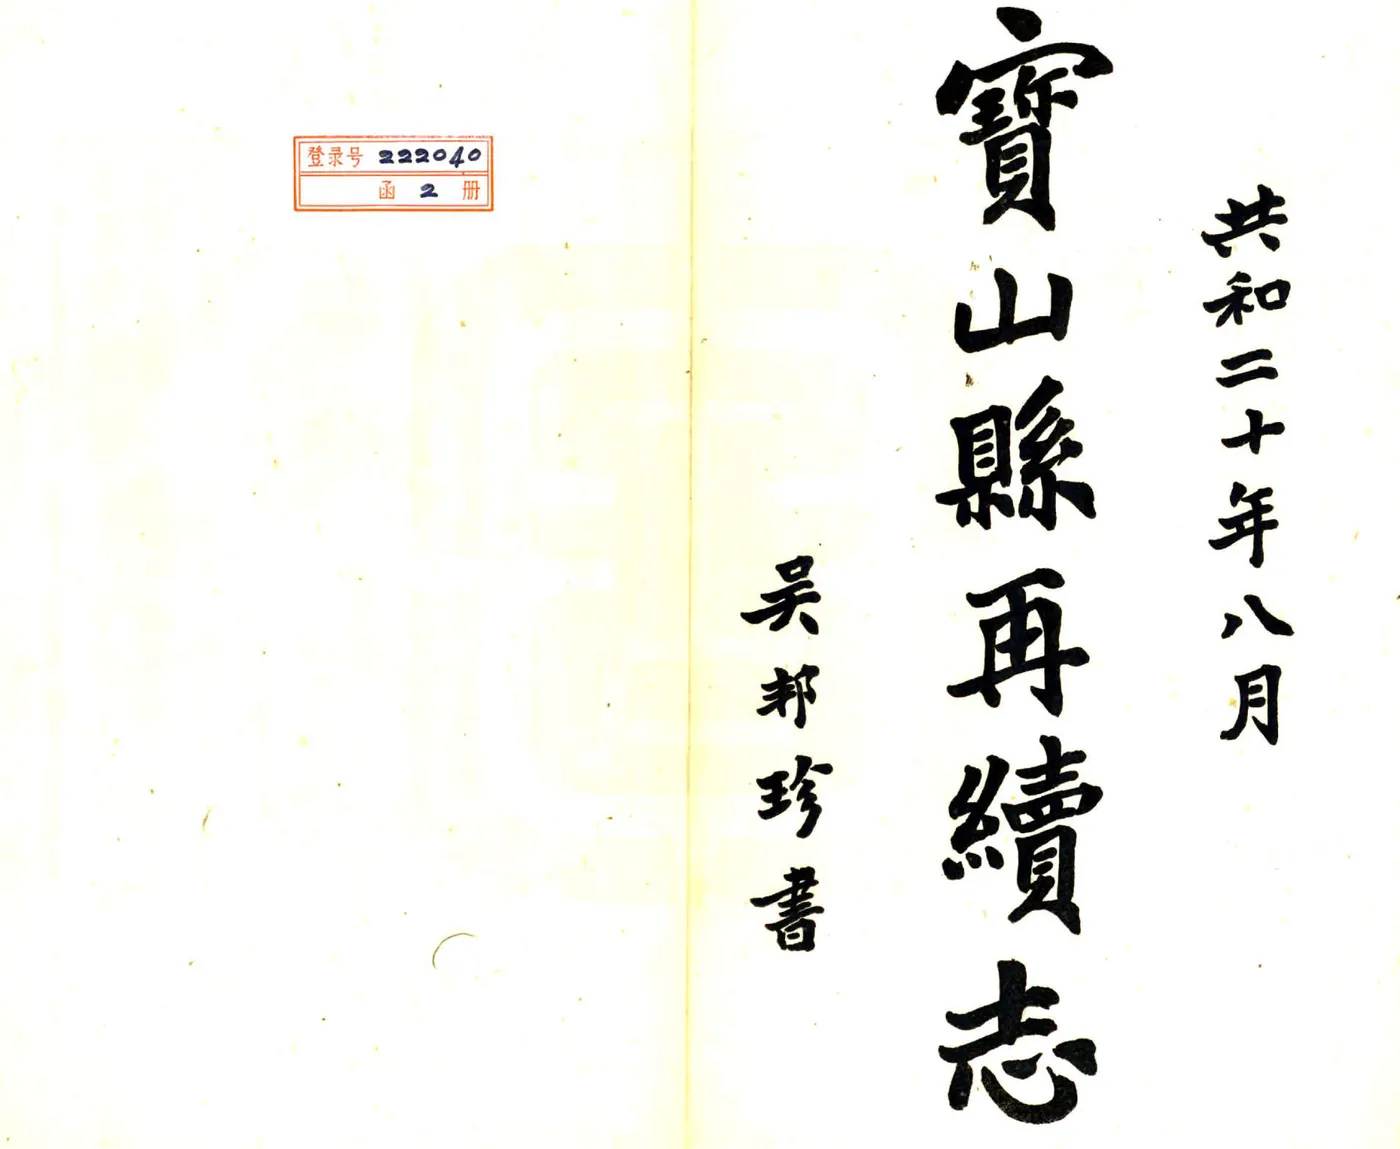 共和二十年八月
寶山縣再續志
吴邦珍書
登录号 222040
函 2 册